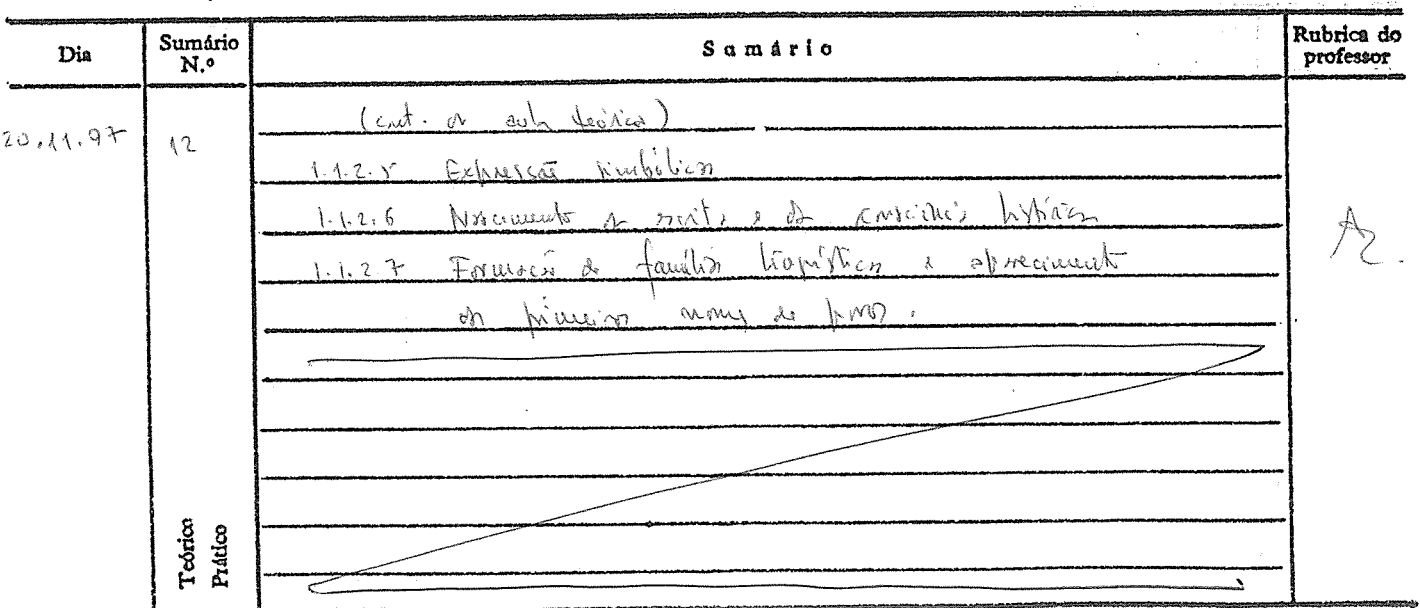 Dia Sumário N.º Sumário Rubrica do professor
20.11.97 12 (cont. da aula teórica)
1.1.2.5 Expressão simbólica
1.1.2.6 Nascimento da escrita e da consciência histórica
1.1.2.7 Formação de famílias linguísticas e aparecimento
dos primeiros nomes de povos.
Teórico
Prático